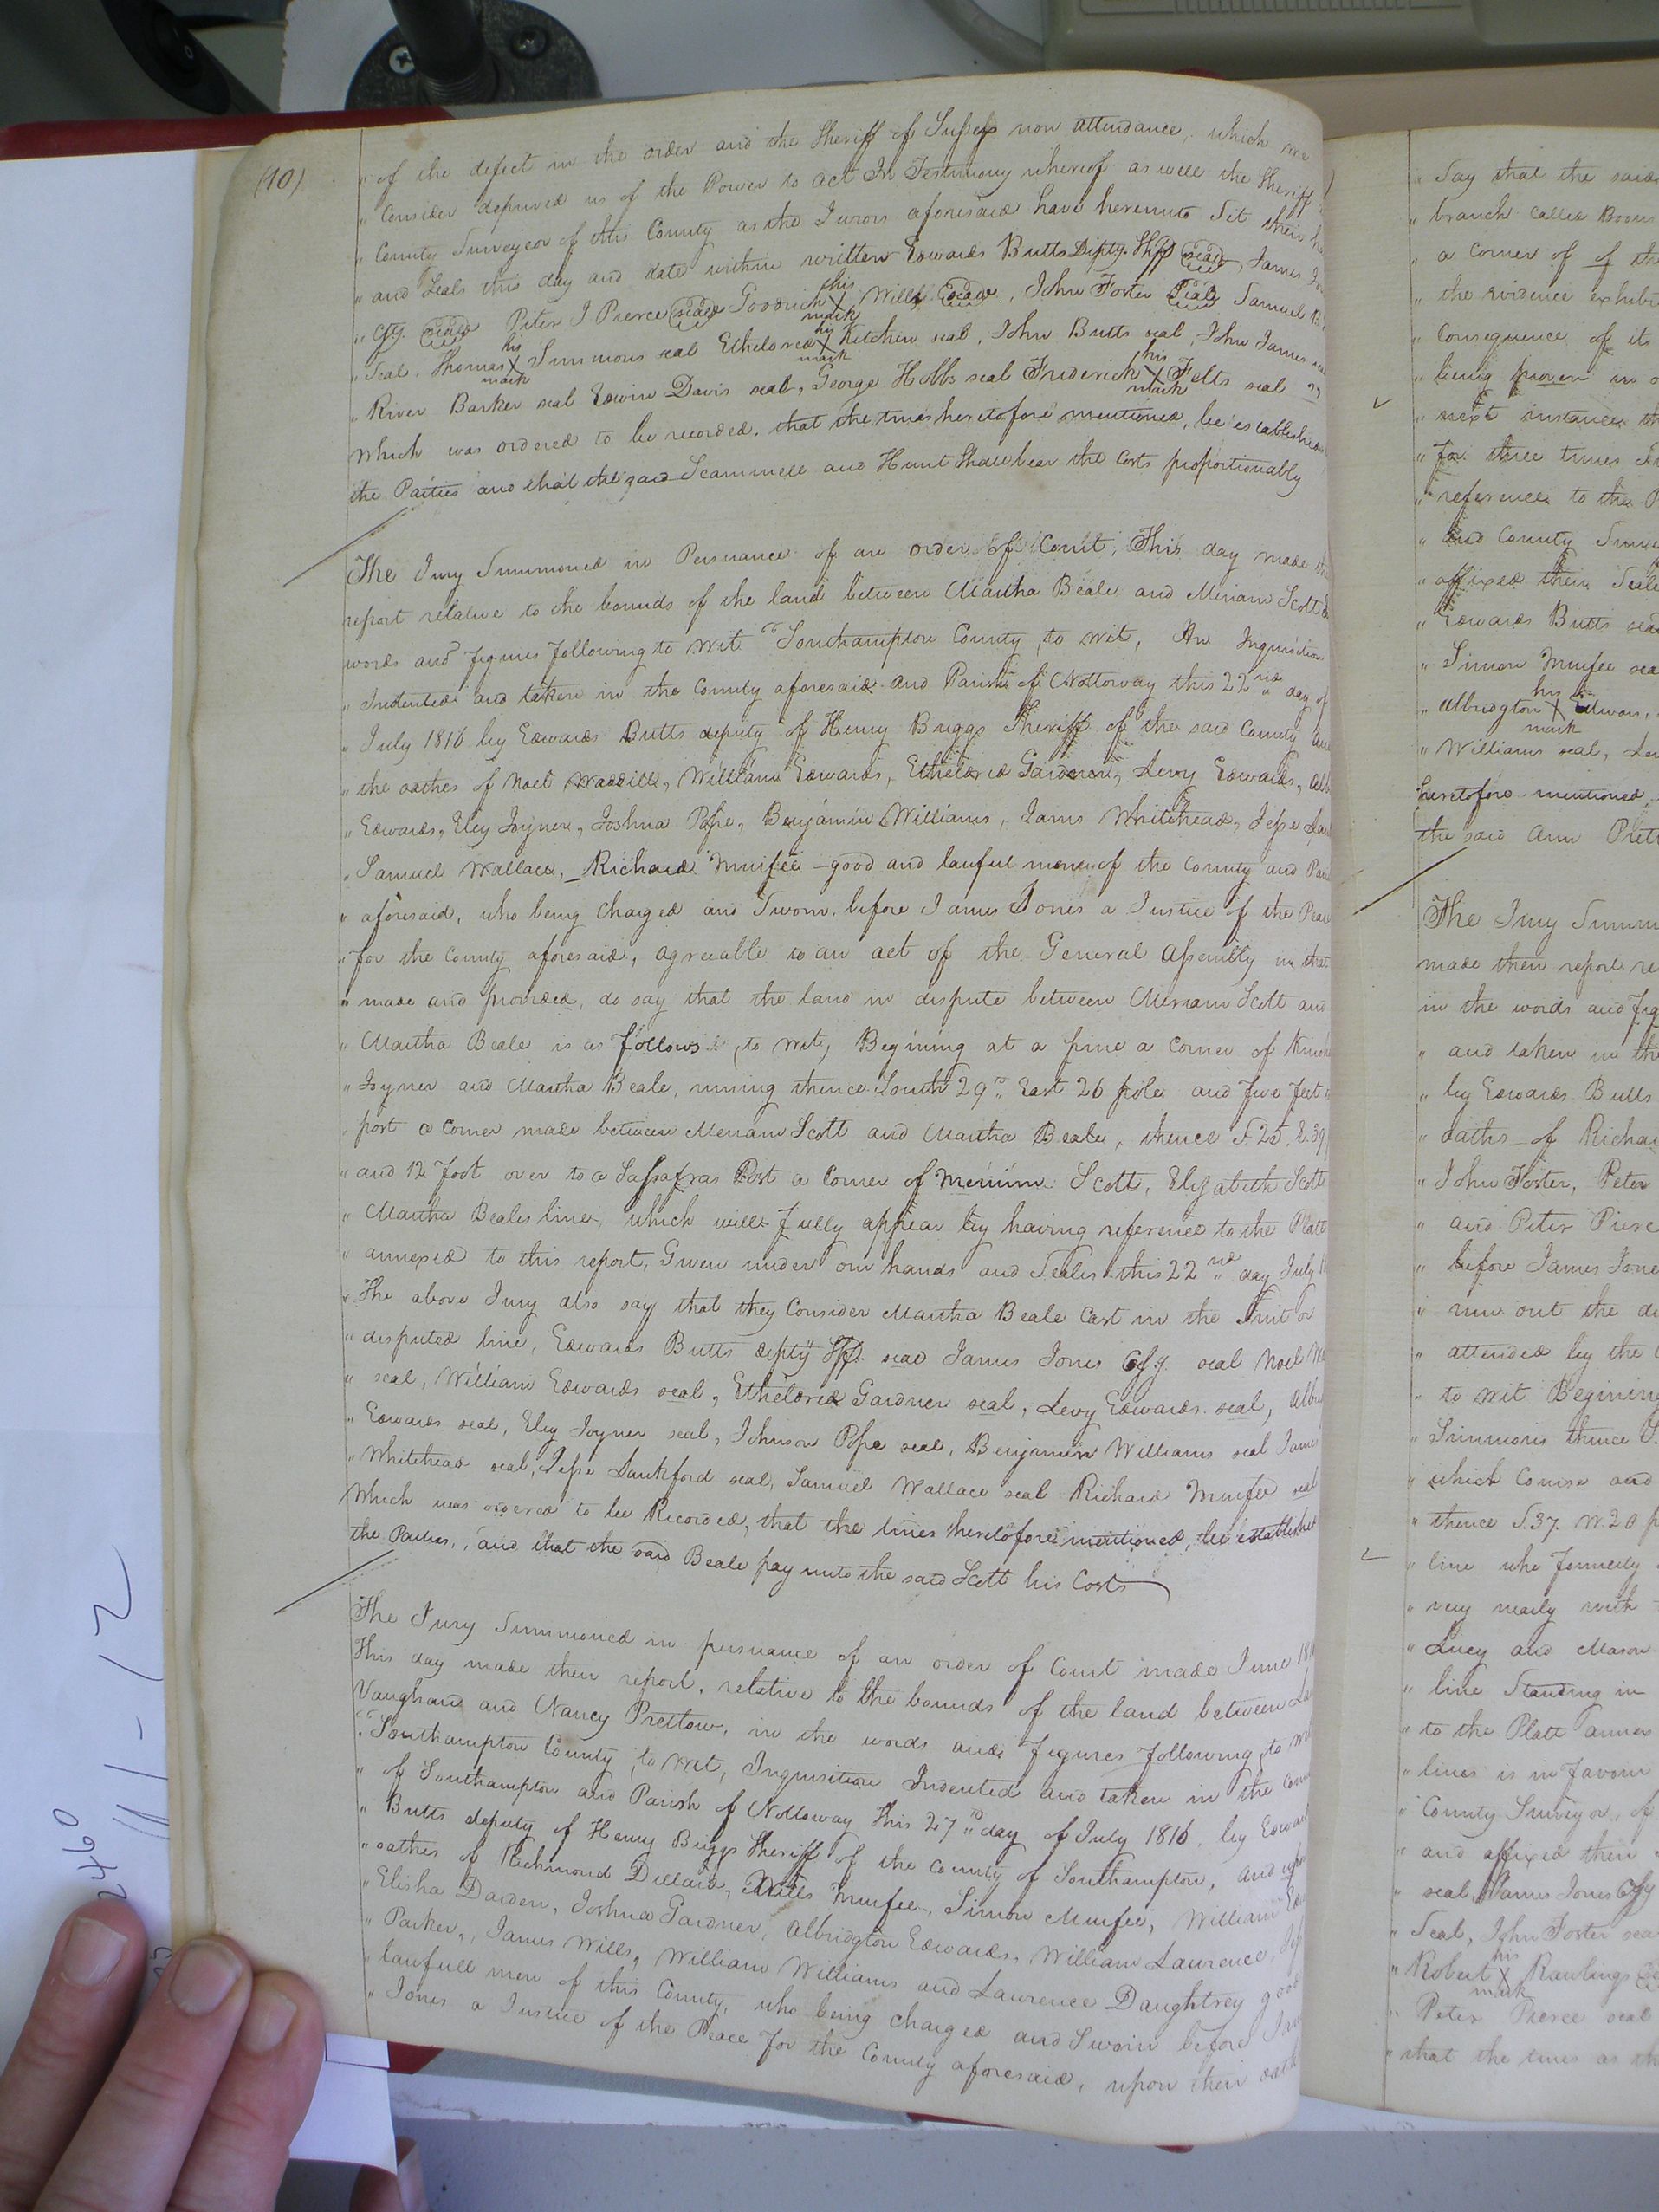 (10)
" of the defect in the order and the Sheriff of Sussex non attendance, which we
" Consider deprived us of the Power to act In Testimony whereof as well the Sheriff
" County Surveyor of this County as the Jurors aforesaid have hereunto Set their
" and Seals this day and date within written Edwards Butts Dpty. Shff seal, James
" seal Peter J Pierce seal Goodrich his X mark Wills seal, John Foster seal Samuel
" Seal. Thomas his X mark Simmons seal Etheldred his X mark Kitchen seal, John Butts seal, John James seal
" River Barker seal Edwin Davis seal, George Hobbs seal Frederick his X mark Felts seal "
which was ordered to be recorded. that the lines heretofore mentioned, be established
the Parties and that the said Scammell and Hunt Shall bear the Costs proportionably
The Jury Summoned in Persuance of an order of Court, This day made
report relative to the bounds of the land between Martha Beale and Miriam Scott
words and figures following to wit "Southampton County, to wit, An Inquisition
" Indented and taken in the County aforesaid and Parish of Nottoway this 22nd day of
" July 1816 by Edwards Butts deputy of Henry Briggs Sheriff of the said County and
" the oathes of Noel Waddill, William Edwards, Etheldred Gardner, Levy Edwards,
" Edwards, Eley Joyner, Joshua Pope, Benjamin Williams, James Whitehead, Jesse
" Samuel Wallace, Richard Murfee good and lawful men of the County and
" aforesaid, who being Charged and Sworn before James Jones a Justice of the Peace
" for the County aforesaid, agreeable to an act of the General Assembly in that
" made and provided, do say that the land in dispute between Meriam Scott and
" Martha Beale is as follows, to wit, Begining at a pine a Corner of
" Joyner and Martha Beale, runing thence South 29 East 26 poles and five feet
" post a Corner made between Meriam Scott and Martha Beale, thence S.25. E.39
" and 12 foot over to a Sassafras Post a Corner of Merium Scott, Elizabeth Scott
" Martha Beales line, which will fully appear by having reference to the Platt
" annexed to this report, Given under our hands and Seales this 22nd day July
" The above Jury also say that they Consider Martha Beale Cast in the Suit or
" disputed line, Edwards Butts depty Shff. seal James Jones seal Noel
" seal, William Edwards seal, Etheldred Gardner seal, Levy Edwards seal,
" Edwards seal, Eley Joyner seal, Johnson Pope seal, Benjamin Williams seal James
" Whitehead seal, Jesse Lankford seal, Samuel Wallace seal Richard Murfee seal
Which was ordered to be Recorded, that the lines heretofore mentioned, be established
the Parties, and that the said Beale pay unto the said Scott his Costs
The Jury Summoned in persuance of an order of Court made June
This day made their report, relative to the bounds of the land between
Vaughan and Nancy Prettow, in the words and figures following, to
"Southampton County, to wit, Inquisition Indented and taken in the
" of Southampton and Parish of Nottoway this 27th day of July 1816, by
" Butts deputy of Henry Briggs Sheriff of the County of Southampton, and
" oathes of Richmond Dillard, Mills Murfee, Simon Murfee, William
" Elisha Darden, Joshua Gardner, Albridgton Edwards, William Lawrence,
" Parker, James Wills, William Williams and Lawrence Daughtrey good
" lawfull men of this County, who being charged and Sworn before
" Jones a Justice of the Peace for the County aforesaid, upon their
" Say that the said
" branch called
" a Corner of of the
" the evidence
" Consequence of its
" being proven
" next instance
" for three times
" reference to the
" and County
" affixed their
" Edwards Butts
" Simon Murfee
" Albridgton his X mark
" Williams seal,
heretofore mentioned
the said Ann
The Jury
made their report
in the words and
" and taken in the
" by Edwards Butts
" oaths of
" John Foster, Peter
" and Peter
" before James
" run out the
" attended by the
" to wit Begining
" Simmons thence
" which Course and
" thence S.37. W.20
" line who formerly
" very nearly with
" Lucy and Mason
" line Standing in
" to the Platt
" lines is in favour
" County Surveyor, of
" and affixed their
" seal, James Jones
" Seal, John Foster
" Robert his X mark Rawlings
" Peter Pierce seal
" that the lines as
2460
11-12